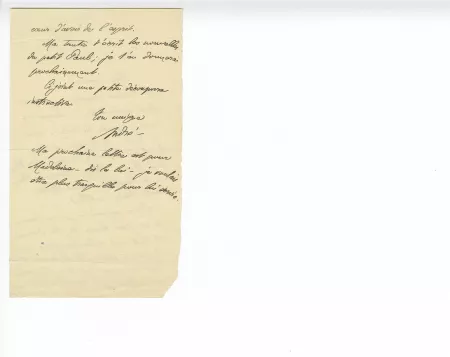 d'avoir de l'esprit.
Ma tante t'écrit les nouvelles
du petit Paul; je t'en donnerai
prochainement.
Ci joint une petite découpure
instructive
Ton
André -
Ma prochaine lettre est pour
Madeleine - dis le lui - je voulais
être plus tranquille pour lui écrire.